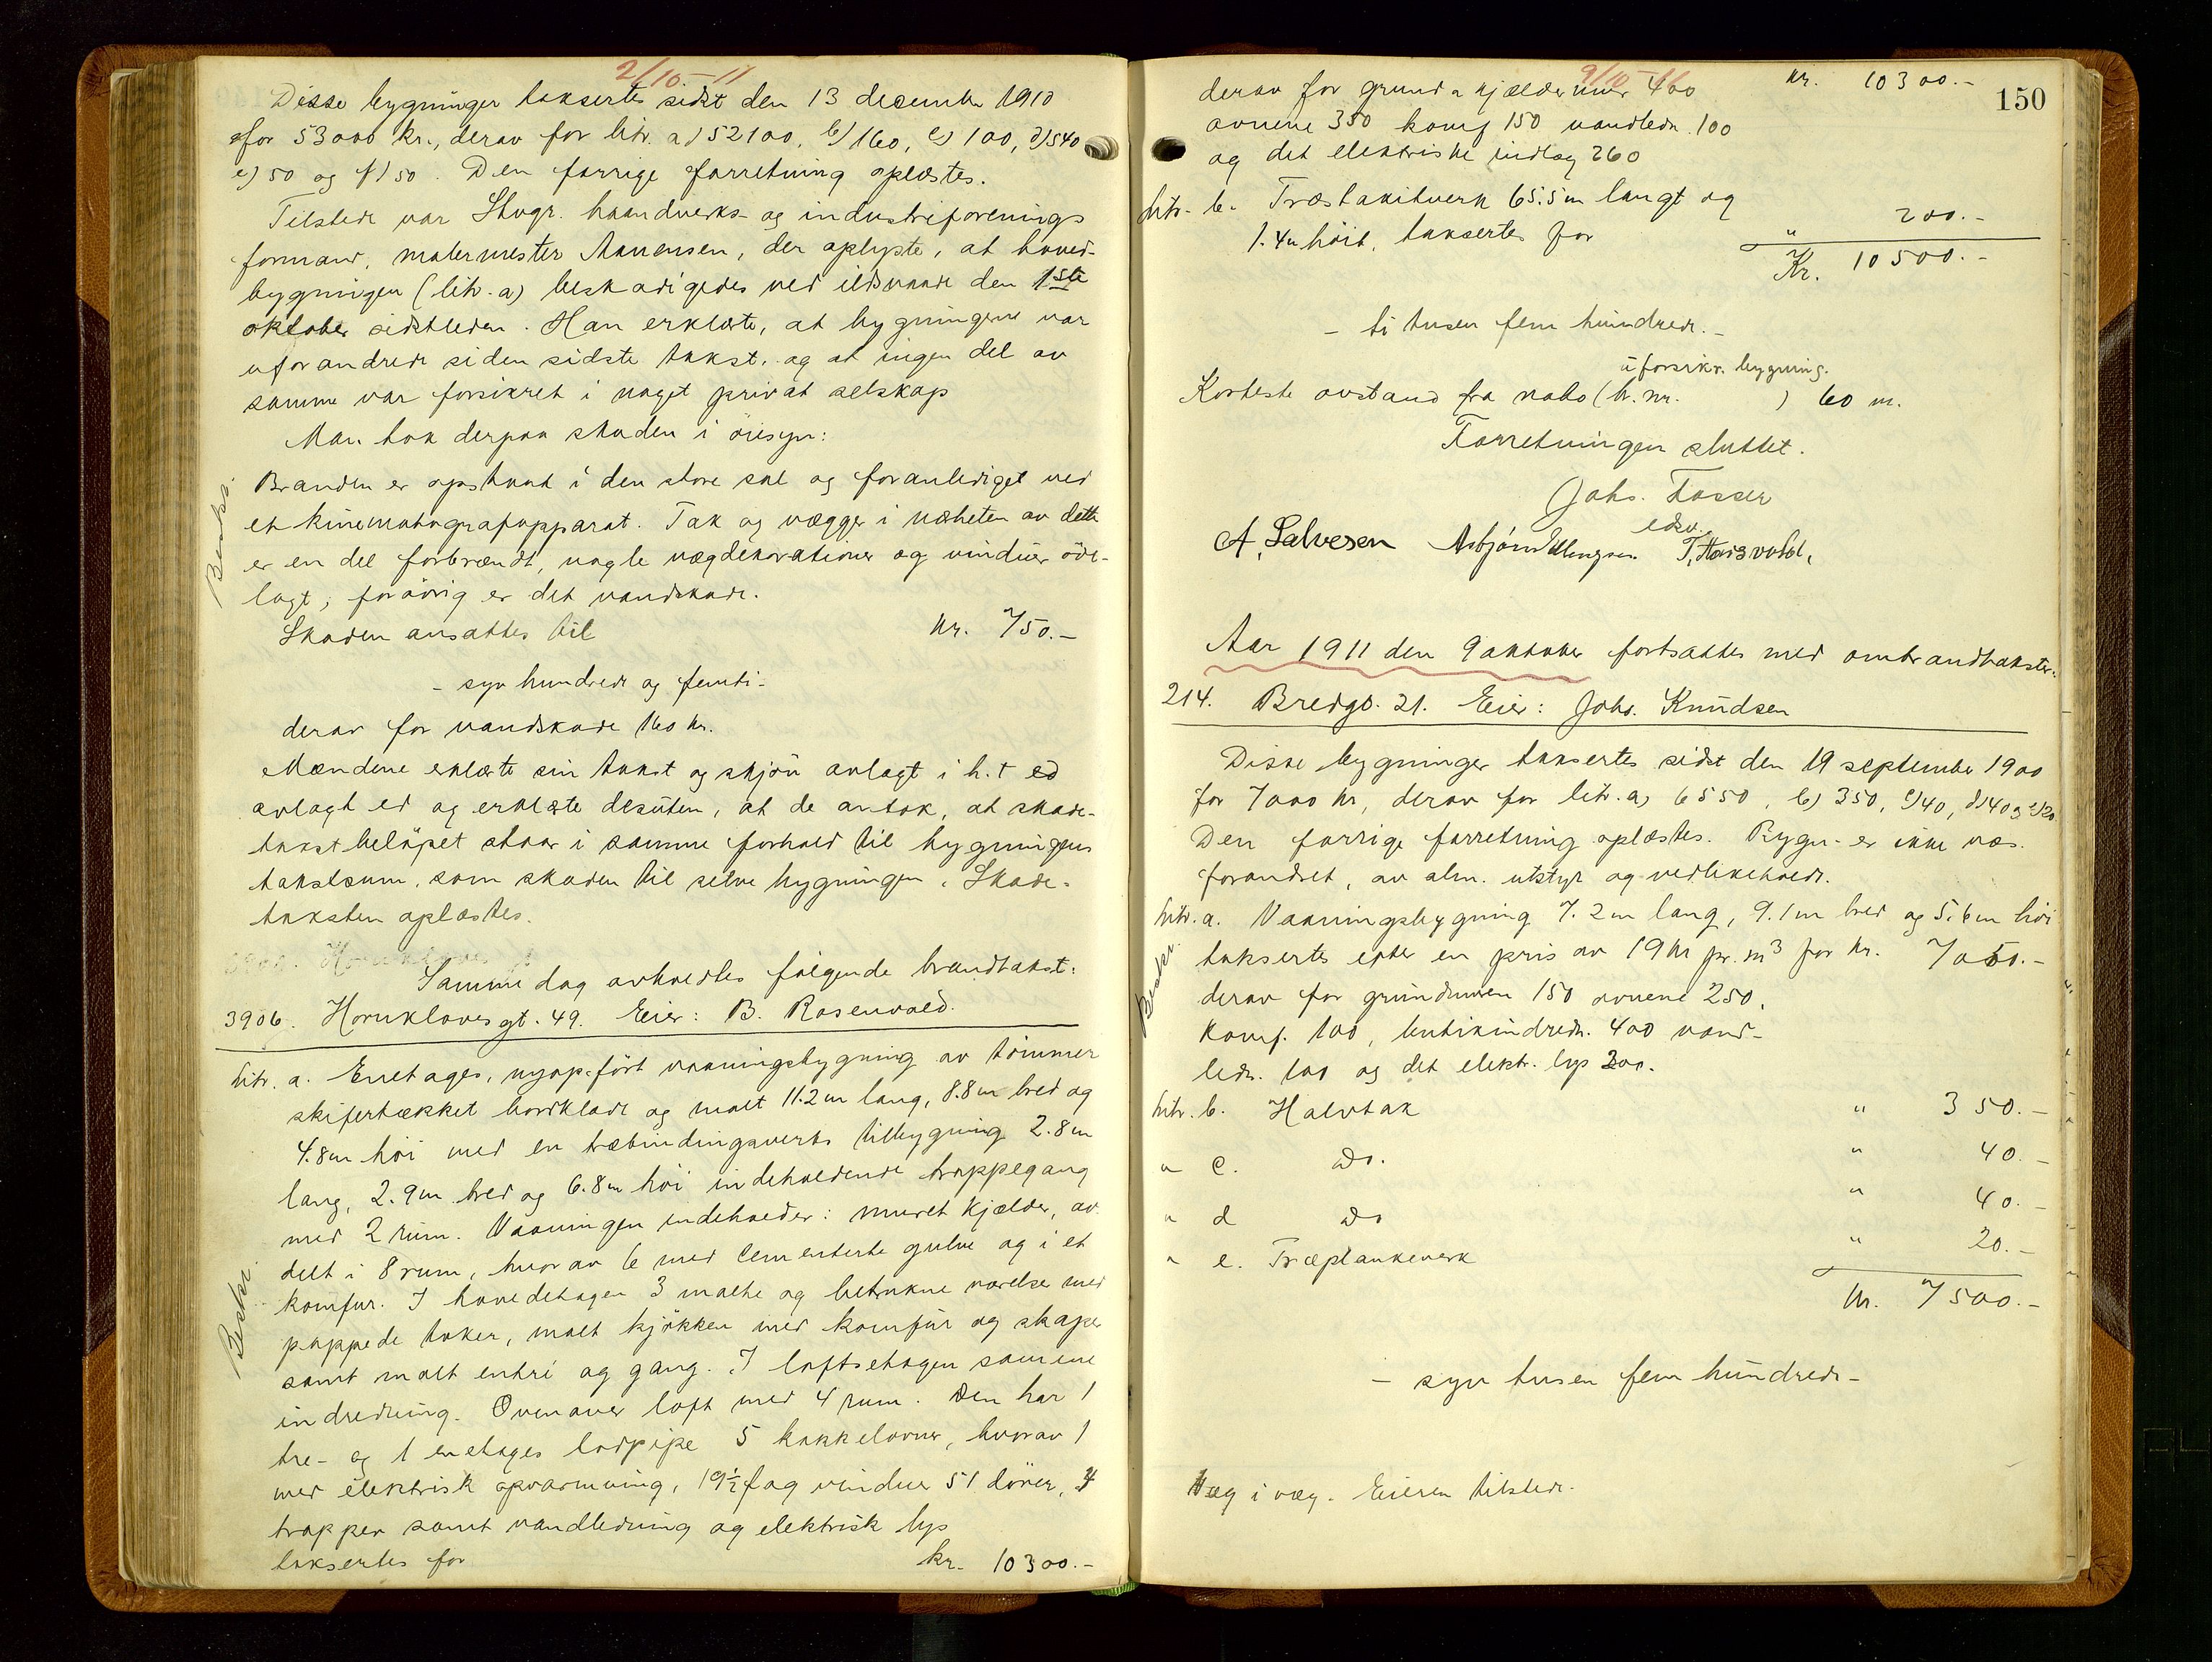 2/10-11
Disse bygninger taksertes sidst den 13 december 1910
for 53000 kr., derav for litr. a) 52100, b) 160, c) 100, d) 540
e) 50 og f) 50. Den forrige forretning oplæstes.
Tilstede var Stvgr. haandverks- og industriforenings
formand, malermester Aanensen, der oplyste, at hoved-
bygningen (litr. a) beskadigedes ved ildsvaade den 1ste
oktober sidstleden. Han erklærte, at bygningerne var
uforandrede siden sidste takst, og at ingen del av
samme var forsikret i noget privat selskap
Man tok derpaa skaden i öiesyn:
Beskr.
Branden er opstaat i den store sal og foranlediget ved
et kinematografapparat. Tak og vægger i næheten av dette
er en del forbrændt, nogle vægdekorationer og vinduer öde-
lagt; forövrig er det vandskade.
Skaden ansattes til kr. 750.-
- syv hundrede og femti -
derav for vandskade 160 kr.
Mændene erklærte sin takst og skjön avlagt i h.t. ed
avlagt ed og erklærte desuten, at de antok, at skade-
takstbelöpet staar i samme forhold til bygningens
takstsum, som skaden til selve bygningen. Skade-
taksten oplæstes.
Samme dag avholdtes følgende brandtakst:
3906. Hornklovesgt. 49. Eier: B. Rosenvold.
Litr. a. Enetages, nyopfört vaaningsbygning av tömmer
skifertækket bordklædt og malt 11.2 m lang, 8.8 m bred og
4.8 m höi med en træbindingsverks tilbygning 2.8 m
lang, 2.9 m bred og 6.8 m höi indeholdende trappegang
med 2 rum. Vaaningen indeholder: muret kjælder, av
delt i 8 rum, hvorav 6 med cementerte gulve og i et
Beskr.
komfur. I hovedetagen 3 malte og betrukne værelser med
pappede taker, malt kjøkken med komfur og skaper
samt malt entré og gang. I loftsetagen samme
indredning. Ovenover loft med 4 rum. Den har 1
tre- og 1 enetages lodpipe 5 kakkelovner, hvorav 1
med elektrisk opvarmning, 19½ fag vinduer 51 dörer, 4
trapper samt vandledning og elektrisk lys
taksertes for kr. 10300.-
9/10-11
150
derav for grund & kjældermur 400 kr. 10300.-
ovnene 350 komf 150 vandledn. 100
og det elektriske indlæg 260
Litr. b. Træstakitverk 65.5 m langt og
1.4 m höit, taksertes for " 200.-
Kr. 10500.-
- ti tusen fem hundrede.-
uforsikr. bygning.
Korteste avstand fra nabo (br. nr. ) 60 m.
Forretningen sluttet.
Johs. Tosser
edsv.
A. Salvesen Asbjörn Ellingsen
Aar 1911 den 9 oktober fortsattes med ombrandtakster.
214. Bredgt. 21. Eier: Johs. Knudsen
Disse bygninger taksertes sidst den 19 september 1900
for 7000 kr, derav for litr. a) 6550, b) 350, c) 40, d) 40 og e) 20
Den forrige forretning oplæstes. Bygn. er ikke væs.
forandret, av alm. utstyr og vedlikeholdt.
Litr. a. Vaaningsbygning 7.2 m lang, 9.1 m bred og 5.6 m höi
Beskr.
taksertes efter en pris av 19 kr pr. m3 for kr. 7050.-
derav for grundmuren 150 ovnene 250,
komf. 100, butikindredn. 400 vand-
ledn. 100 og det elektr. lys 200.
Litr. b. Halvtak " 350.-
" c. do. " 40.-
" d do " 40.-
" e. Træplankeverk " 20.-
kr. 7500.-
- syv tusen fem hundrede -
Væg i væg. Eieren tilstede.